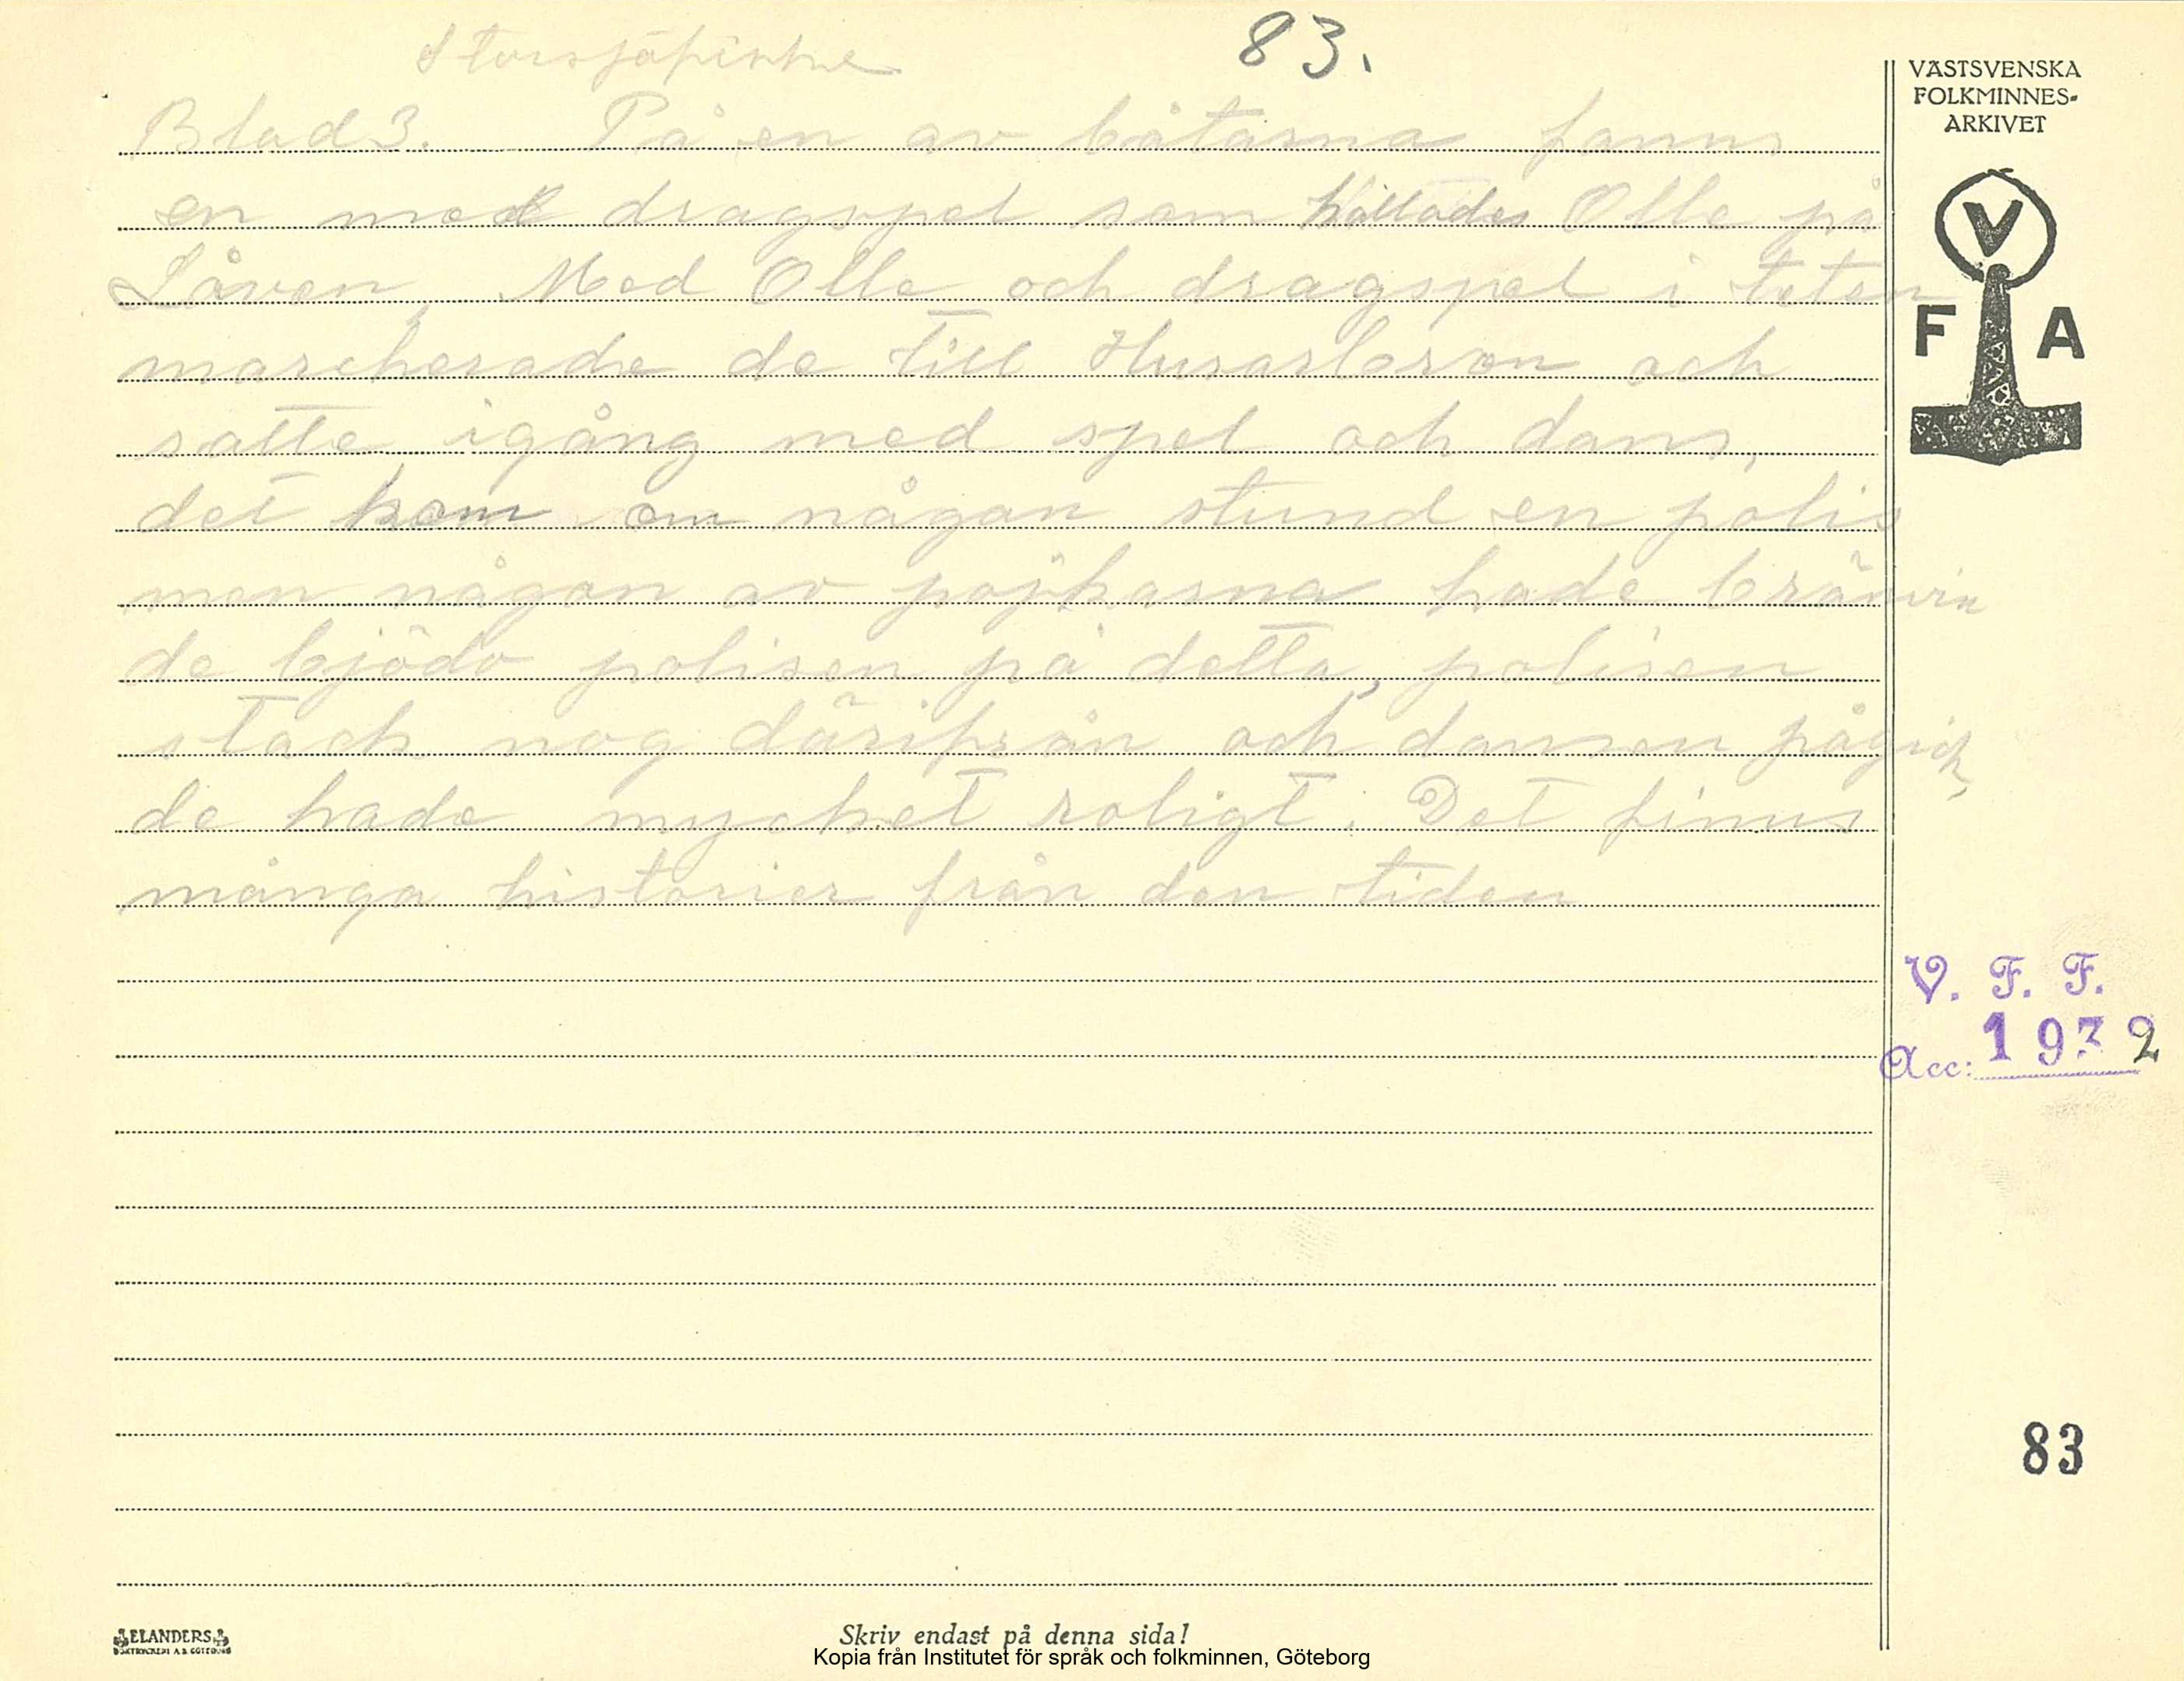 Storsjöfiske 83.
Blad 3. På en av båtarna fanns
en med dragspel som kallades Olle på
Låven, Med Olle och dragspel i teten
marcherade de till Husarberon och
satte igång med spel och dans,
det kom om någon stund en polis
men någon av pojkarna hade brävin
de bjödo polisen på detta, polisen
stack nog därifrån och dansen pågick,
de hade mycket roligt. Det finns
många historier från den tiden
VÄSTSVENSKA
FOLKMINNES-
ARKIVET
V
F A
V. F. F.
Acc: 1932
83
ELANDERS
BOKTRYCKERI A.B. GÖTEBORG
Skriv endast på denna sida!
Kopia från Institutet för språk och folkminnen, Göteborg